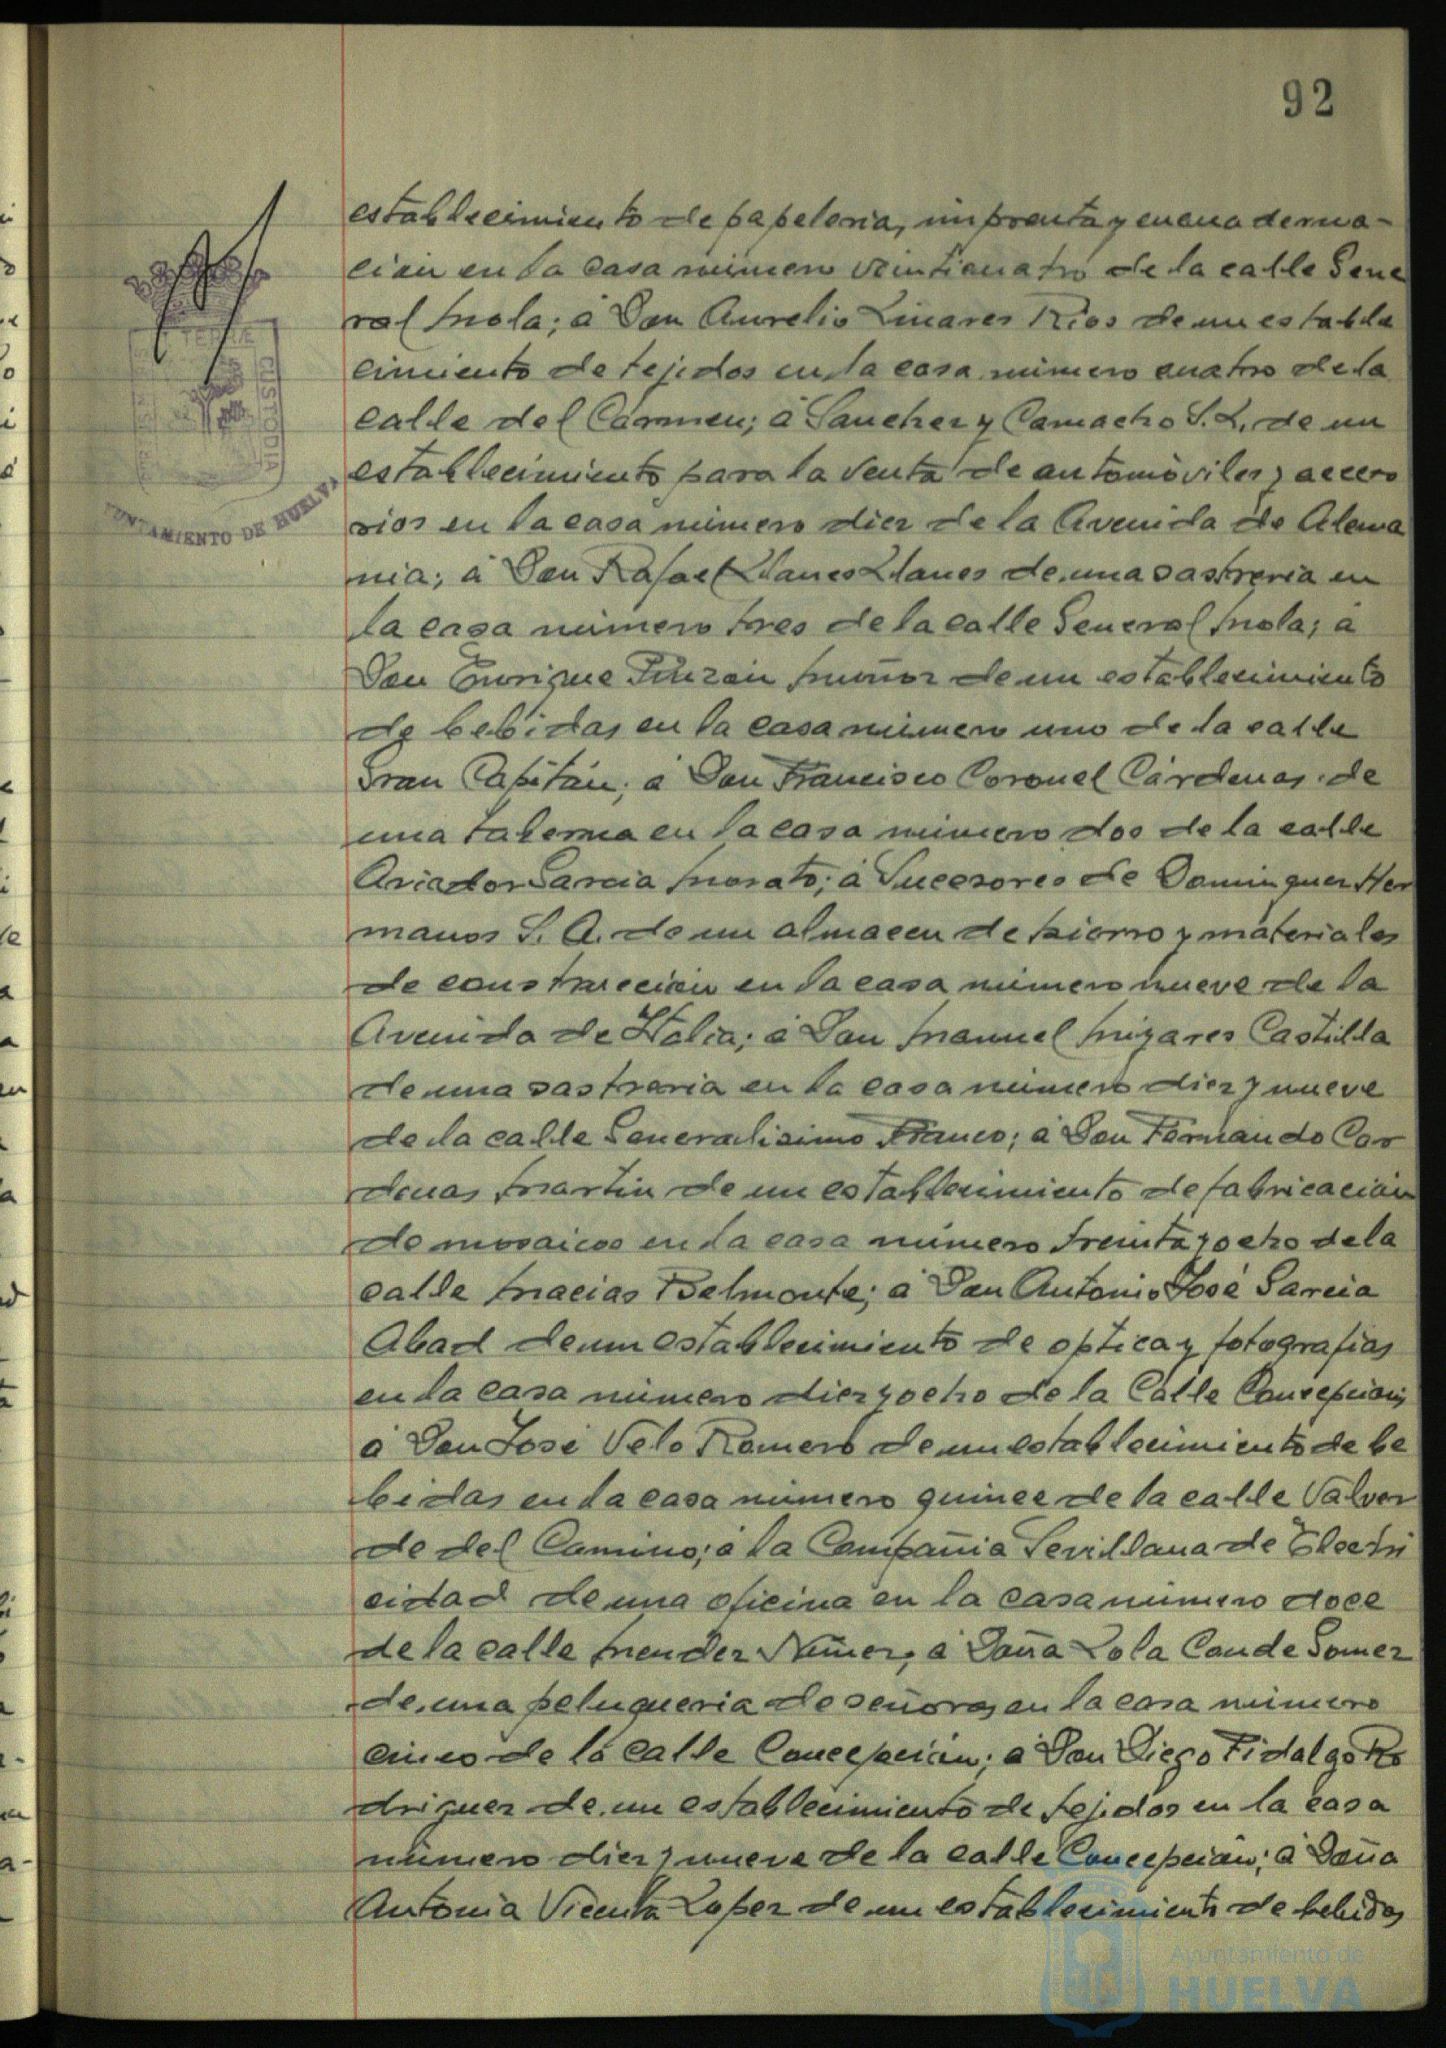 92
establecimiento de papeleria, imprenta y encuaderna-
cion en la casa número veinticuatro de la calle Gene
ral Mola; á Don Aurelio Linares Rios de un estable
cimiento de tejidos en la casa número cuatro de la
calle del Carmen; á Sanchez y Camacho S. L. de un
establecimiento para la venta de automóviles y acceso
rios en la casa número diez de la Avenida de Alema
nia; á Don Rafael Llanes Llanes de una sastreria en
la casa número tres de la calle General Mola; á
Don Enrique Pinzón Muñoz de un establecimiento
de bebidas en la casa número uno de la calle
Gran Capitán; á Don Francisco Coronel Cárdenas de
una taberna en la casa número dos de la calle
Aviador Garcia Morato; á Sucesores de Dominguez Her
manos S. A. de un almacen de hierro y materiales
de construcción en la casa número nueve de la
Avenida de Italia; á Don Manuel Mizares Castilla
de una sastreria en la casa número diez y nueve
de la calle Generalisimo Franco; á Don Fernando Car
denas Martin de un establecimiento de fabricación
de mosaicos en la casa número treinta y ocho de la
calle Macias Belmonte; á Don Antonio José Garcia
Abad de un establecimiento de optica y fotografias
en la casa número diez y ocho de la Calle Concepción;
á Don José Velo Romero de un establecimiento de be
bidas en la casa número quince de la calle Valver
de del Camino; á la Compañia Sevillana de Electri
cidad de una oficina en la casa número doce
de la calle Mendez Nuñez; á Doña Lola Conde Gomez
de una peluqueria de señoras en la casa número
cinco de la calle Concepción; á Don Diego Fidalgo Ro
driguez de un establecimiento de tejidos en la casa
número diez y nueve de la calle Concepción; á Doña
Antonia Vicenta Lopez de un establecimiento de bebidas
CUSTODIA
AYUNTAMIENTO DE HUELVA
Ayuntamiento de
HUELVA